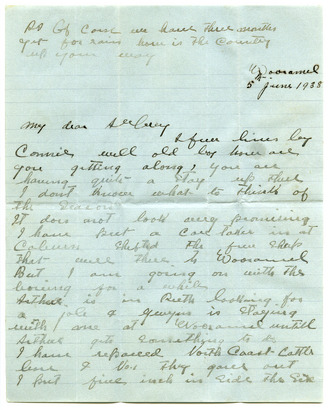 PS Of course we have three months
yet for rain how is the Country
up your way
"Wooramel
5th June 1938
My dear
A few lines by
Connie well old boy how are
you getting along, you are
having quite a stay up there
I don't know what to think of
the season
It does not look very promising
I have put a caretaker in at
Coburn shifted the few sheep
that were there to Wooramel
But I am going on with the
boring for a while
Arthur is in Perth looking for
a job & Gwyn is staying
with me at Wooramel until
Arthur gets something to do
I have replaced North Coast Cattle
line & Box they gave out
I put five inch inside the six